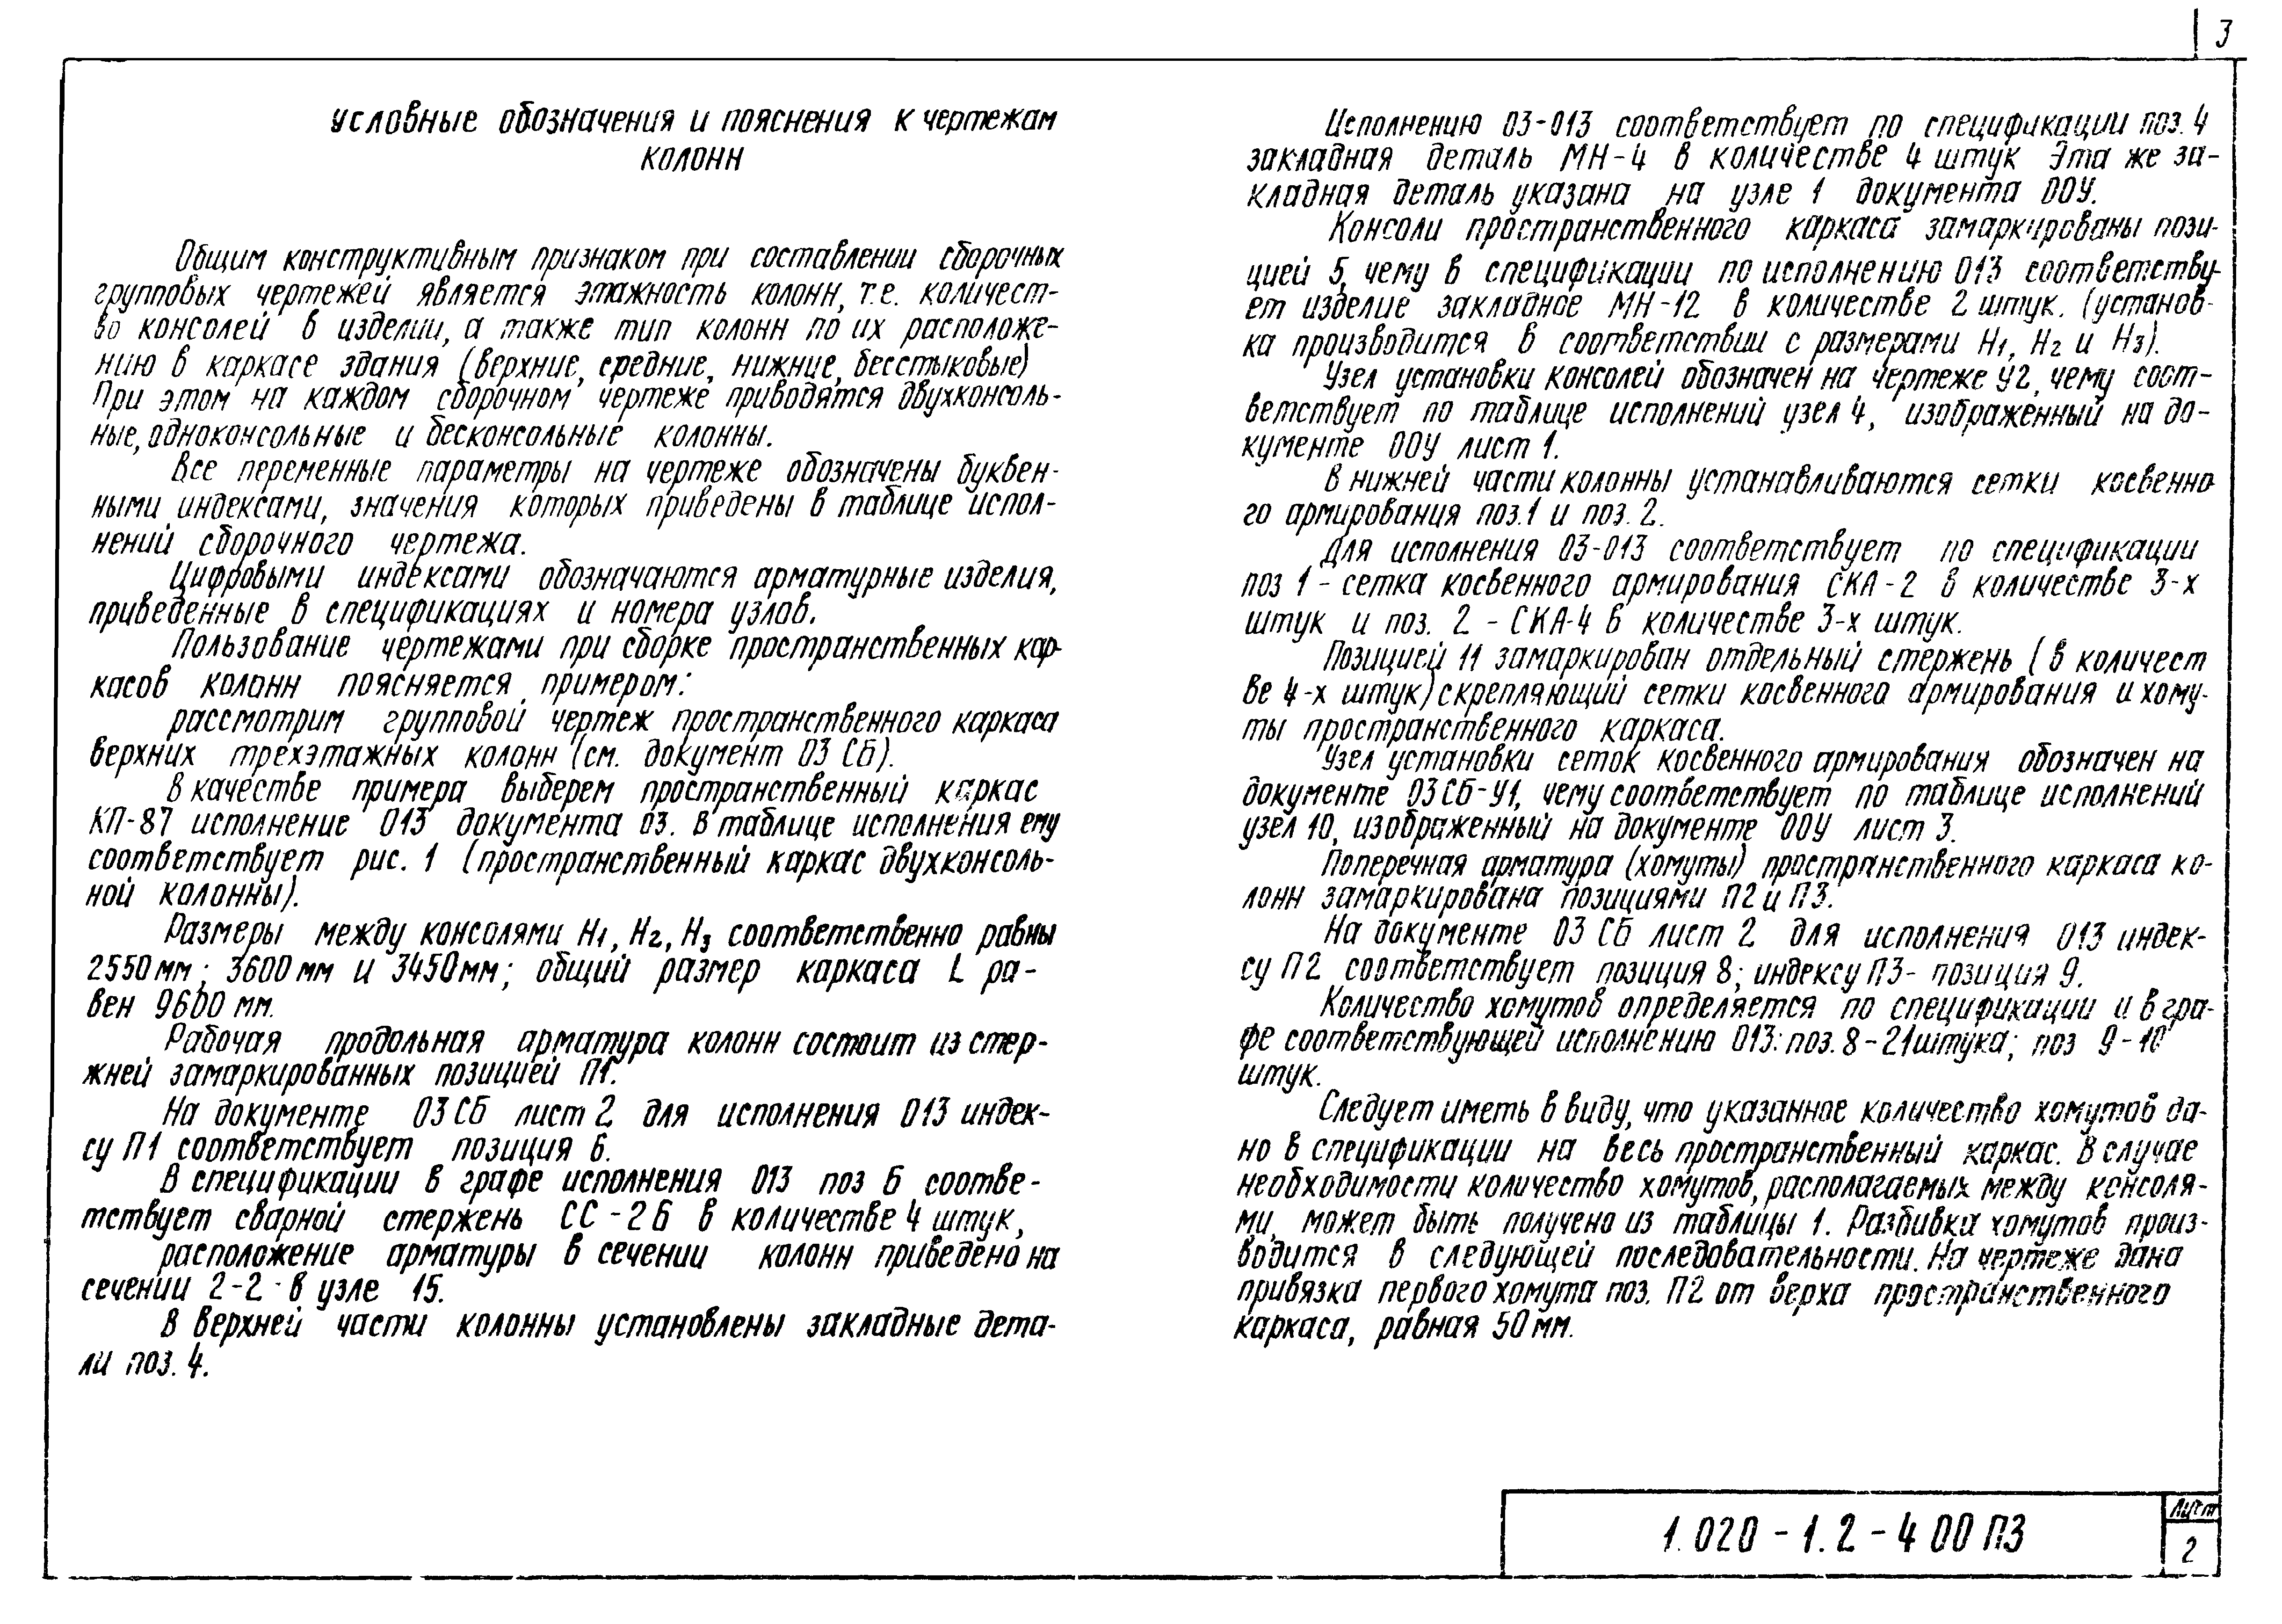 3
Условные обозначения и пояснения к чертежам
колонн
Общим конструктивным признаком при составлении сборочных
групповых чертежей является этажность колонн, т.е. количест-
во консолей в изделии, а также тип колонн по их расположе-
нию в каркасе здания (верхние, средние, нижние, бесстыковые)
При этом на каждом сборочном чертеже приводятся двухконсоль-
ные, одноконсольные и бесконсольные колонны.
Все переменные параметры на чертеже обозначены буквен-
ными индексами, значения которых приведены в таблице испол-
нений сборочного чертежа.
Цифровыми индексами обозначаются арматурные изделия,
приведенные в спецификациях и номера узлов.
Пользование чертежами при сборке пространственных кар-
касов колонн поясняется примером:
рассмотрим групповой чертеж пространственного каркаса
верхних трехэтажных колонн (см. документ 03 СБ).
В качестве примера выберем пространственный каркас
КП-87 исполнение 013 документа 03. В таблице исполнения ему
соответствует рис. 1 (пространственный каркас двухконсоль-
ной колонны).
Размеры между консолями Н1, Н2, Н3 соответственно равны
2550 мм; 3600 мм и 3450 мм; общий размер каркаса L ра-
вен 9600 мм.
Рабочая продольная арматура колонн состоит из стер-
жней замаркированных позицией П1.
На документе 03 СБ лист 2 для исполнения 013 индек-
су П1 соответствует позиция 6.
В спецификации в графе исполнения 013 поз 6 соотве-
тствует сварной стержень СС-26 в количестве 4 штук,
расположение арматуры в сечении колонн приведено на
сечении 2-2 в узле 15.
В верхней части колонны установлены закладные дета-
ли поз. 4.
Исполнению 03-013 соответствует по спецификации поз. 4
закладная деталь МН-4 в количестве 4 штук Эта же за-
кладная деталь указана на узле 1 документа 00У.
Консоли пространственного каркаса замаркированы пози-
цией 5, чему в спецификации по исполнению 013 соответству-
ет изделие закладное МН-12 в количестве 2 штук. (установ-
ка производится в соответствии с размерами Н1, Н2 и Н3).
Узел установки консолей обозначен на чертеже У2, чему соот-
ветствует по таблице исполнений узел 4, изображенный на до-
кументе 00У лист 1.
В нижней части колонны устанавливаются сетки косвенно
го армирования поз.1 и поз. 2.
Для исполнения 03-013 соответствует по спецификации
поз 1 - сетка косвенного армирования СКА-2 в количестве 3-х
штук и поз. 2 - СКА-4 в количестве 3-х штук.
Позицией 11 замаркирован отдельный стержень (в количест
ве 4-х штук) скрепляющий сетки косвенного армирования и хому-
ты пространственного каркаса.
Узел установки сеток косвенного армирования обозначен на
документе 03 СБ-У1, чему соответствует по таблице исполнений
узел 10, изображенный на документе 00У лист 3.
Поперечная арматура (хомуты) пространственного каркаса ко-
лонн замаркирована позициями П2 и П3.
На документе 03 СБ лист 2 для исполнения 013 индек-
су П2 соответствует позиция 8; индексу П3- позиция 9.
Количество хомутов определяется по спецификации и в гра-
фе соответствующей исполнению 013: поз. 8-21 штука; поз 9-10
штук.
Следует иметь в виду, что указанное количество хомутов да-
но в спецификации на весь пространственный каркас. В случае
необходимости количество хомутов, располагаемых между консоля-
ми, может быть получено из таблицы 1. Разбивка хомутов произ-
водится в следующей последовательности. На чертеже дана
привязка первого хомута поз. П2 от верха пространственного
каркаса, равная 50 мм.
1.020-1.2-4 00 ПЗ
Лист
2